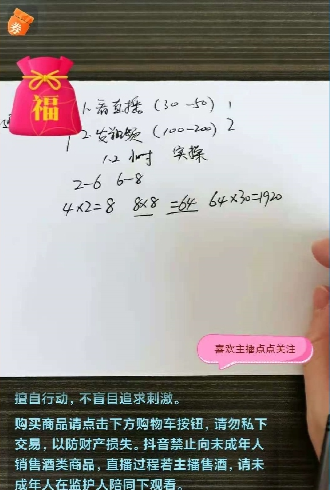 券
福
1.看直播 (30-50) 1
2.发视频 (100-200) 2
1-2小时 实操
2-6 6-8
4×2=8 8×8 =64 64×30=1920
喜欢主播点点关注
擅自行动，不盲目追求刺激。
购买商品请点击下方购物车按钮，请勿私下
交易，以防财产损失。抖音禁止向未成年人
销售酒类商品，直播过程若主播售酒，请未
成年人在监护人陪同下观看。